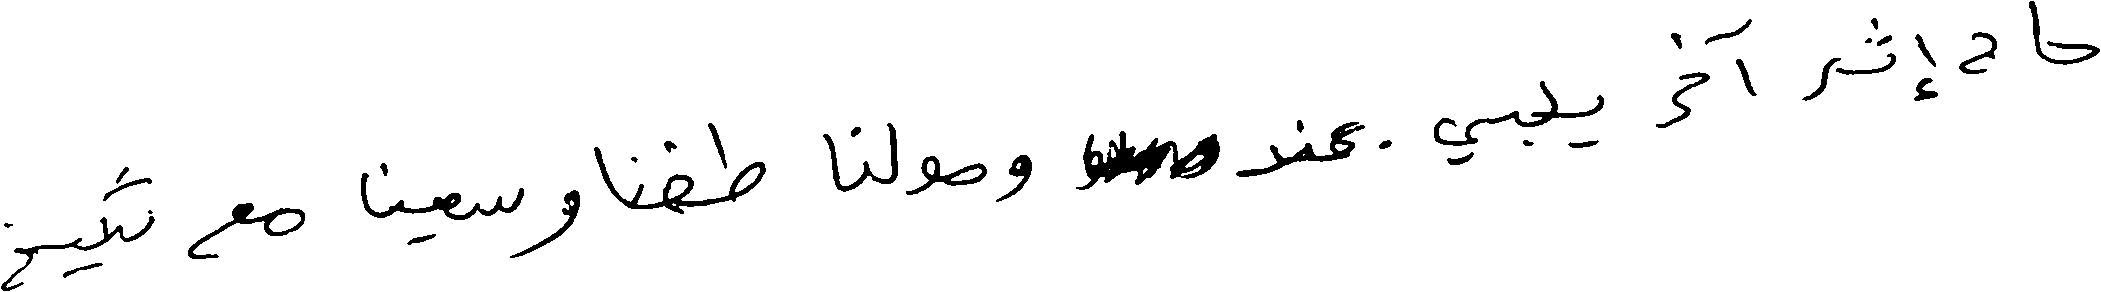 حاج إثر آخر يلبي. عند وصولنا طفنا وسعينا مع شيخ